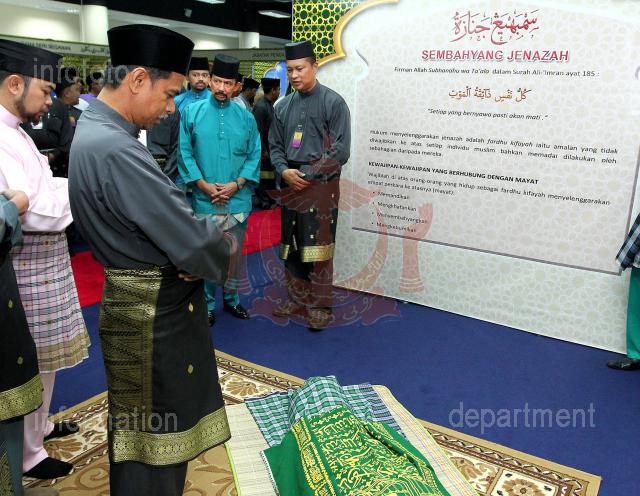 سمبهيڠ جنازة
SEMBAHYANG JENAZAH
Firman Allah Subhanahu wa Ta'ala dalam Surah Ali-'Imran ayat 185 :
كُلُّ نَفْسٍ ذَائِقَةُ الْمَوْتِ
"Setiap yang bernyawa pasti mati".
Hukum menyelenggarakan jenazah adalah fardhu kifayah iaitu amalan yang tidak
diwajibkan ke atas setiap individu muslim bahkan memadai dilakukan oleh
sebahagian daripada mereka.
KEWAJIPAN-KEWAJIPAN YANG BERHUBUNG DENGAN MAYAT
Wajib di atas orang-orang yang hidup sebagai fardhu kifayah menyelenggarakan
empat perkara ke atasnya (mayat):
• Memandikan
• Mengkhafankan
• Menyembahyangkan
• Mengkebumikan
infofoto
information
department